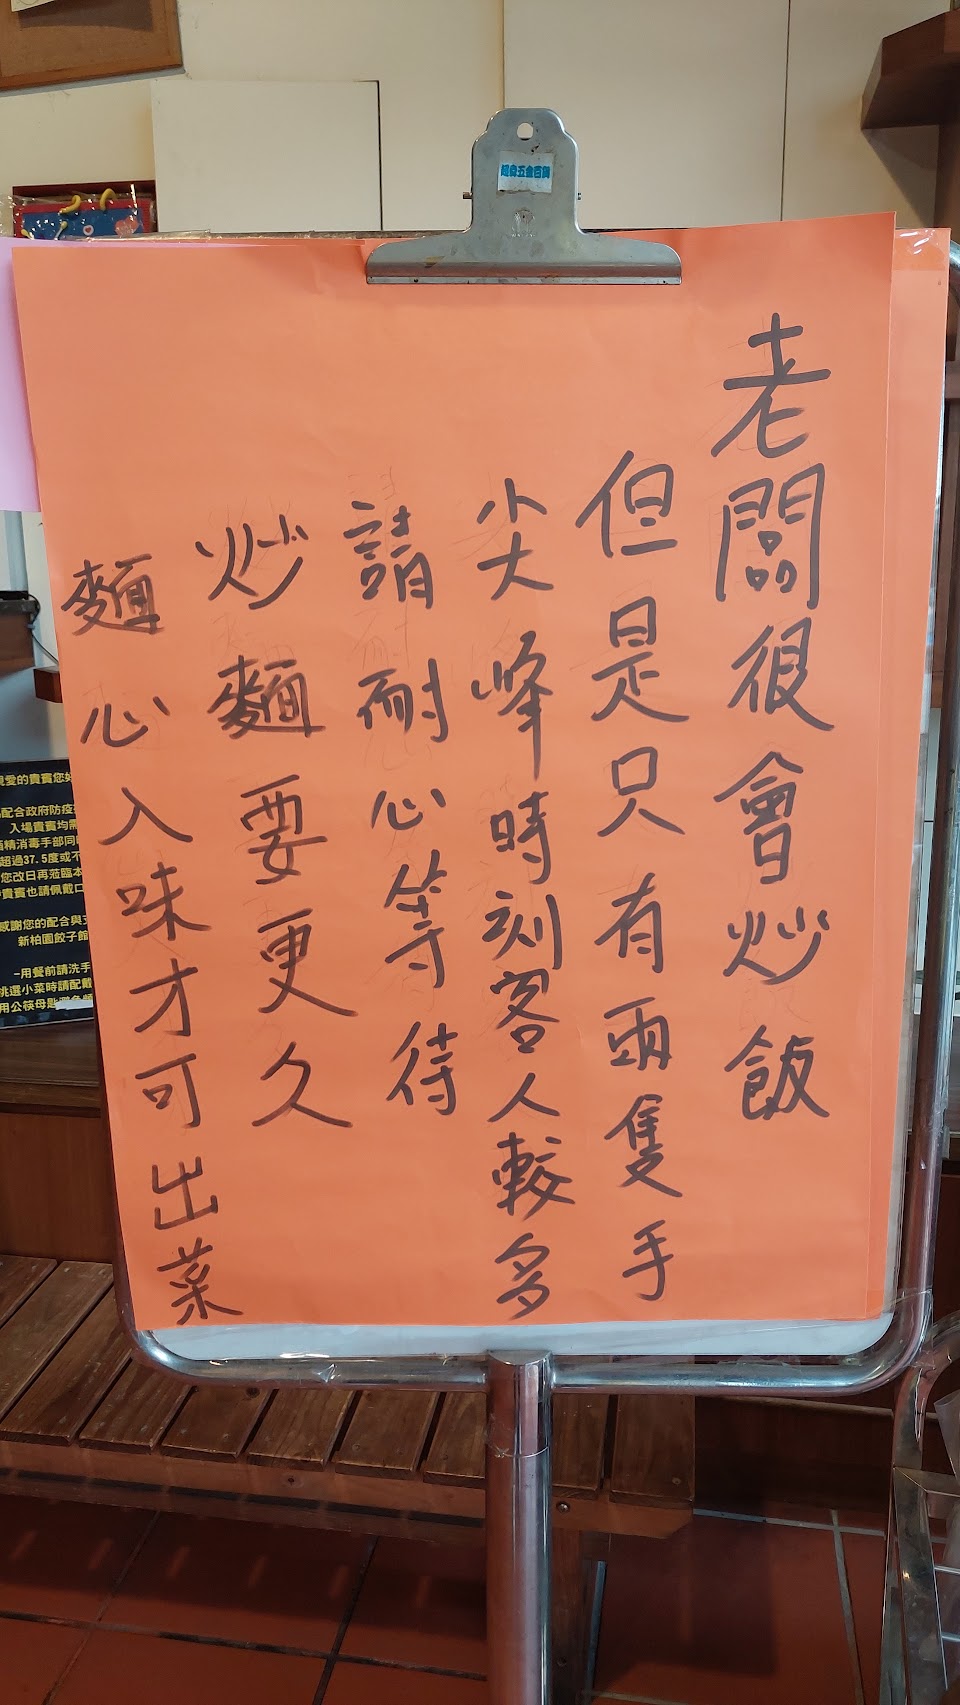 老闆很會炒飯
但是只有兩隻手
尖峰時刻客人較多
請耐心等待
炒麵要更久
麵心入味才可出菜
親愛的貴賓您好
配合政府防疫
入場貴賓均需
酒精消毒手部同
超過37.5度或不
您改日再蒞臨本
貴賓也請佩戴口
感謝您的配合與支
新柏園餃子館
-用餐前請洗手
挑選小菜時請配戴
用公筷母匙避免